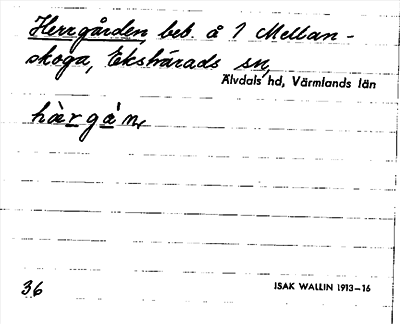 Herrgården, beb. å 1 Mellan-
skoga, Ekshärads sn,
Älvdals hd, Värmlands län
hàrgá'n,
36
ISAK WALLIN 1913–16